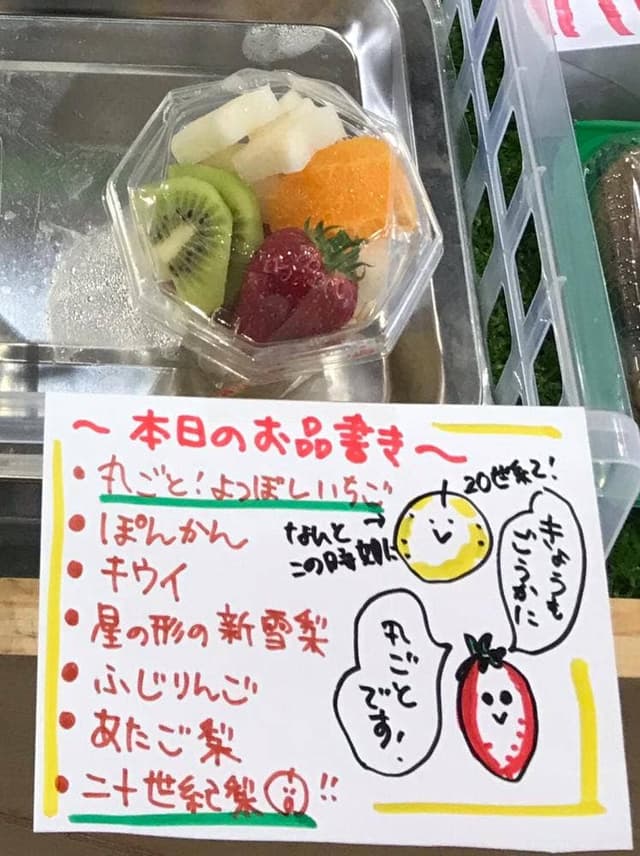 ～本日のお品書き～
・丸ごと！よつぼしいちご
・ぽんかん
・キウイ
・星の形の新雪梨
・ふじりんご
・あたご梨
・二十世紀梨!!
20世紀で!
なんと
この時期に
きょうも
ごうかに
丸ごと
です!